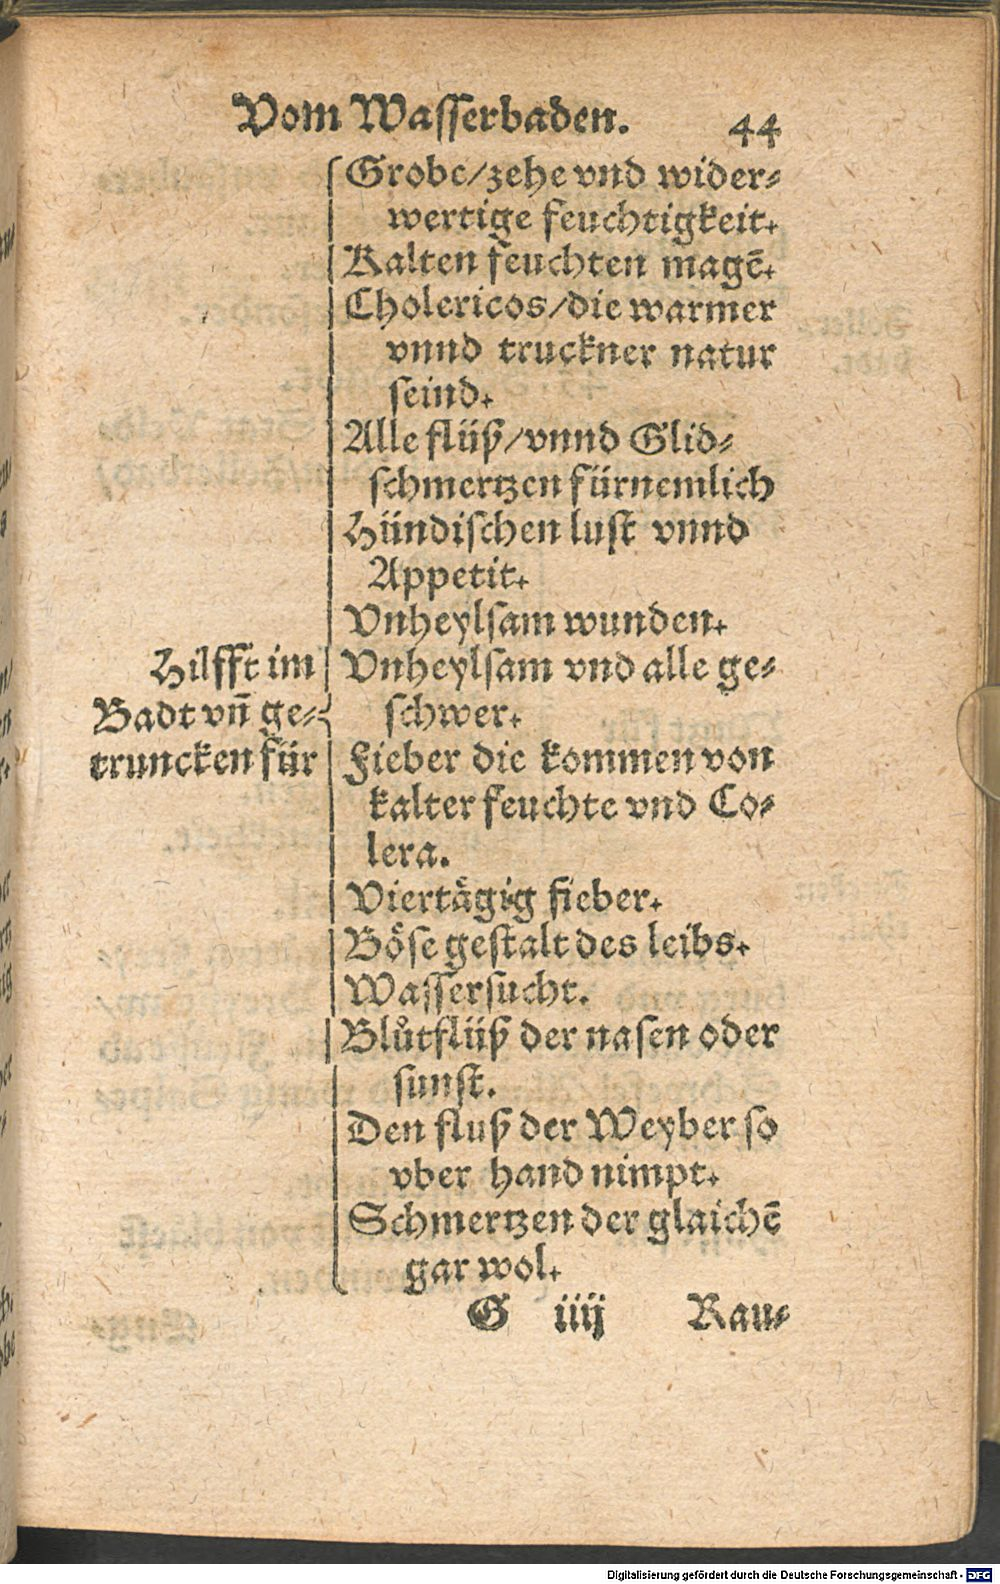 Vom Wasserbaden. 44
Grobe/zehe vnd wider⸗
wertige feuchtigkeit.
Kalten feuchten magē.
Cholericos/die warmer
vnnd truckner natur
seind.
Alle flüß/vnnd Glid⸗
schmertzen fürnemlich
Hündischen lust vnnd
Appetit.
Vnheylsam wunden.
Hilfft im
Badt vñ ge⸗
truncken für
Vnheylsam vnd alle ge⸗
schwer.
Fieber die kommen von
kalter feuchte vnd Co⸗
lera.
Viertägig fieber.
Böse gestalt des leibs.
Wassersucht.
Blůtflüß der nasen oder
sunst.
Den fluß der Weyber so
vber hand nimpt.
Schmertzen der glaichē
gar wol.
G iiij Rau⸗
Digitalisierung gefördert durch die Deutsche Forschungsgemeinschaft - DFG